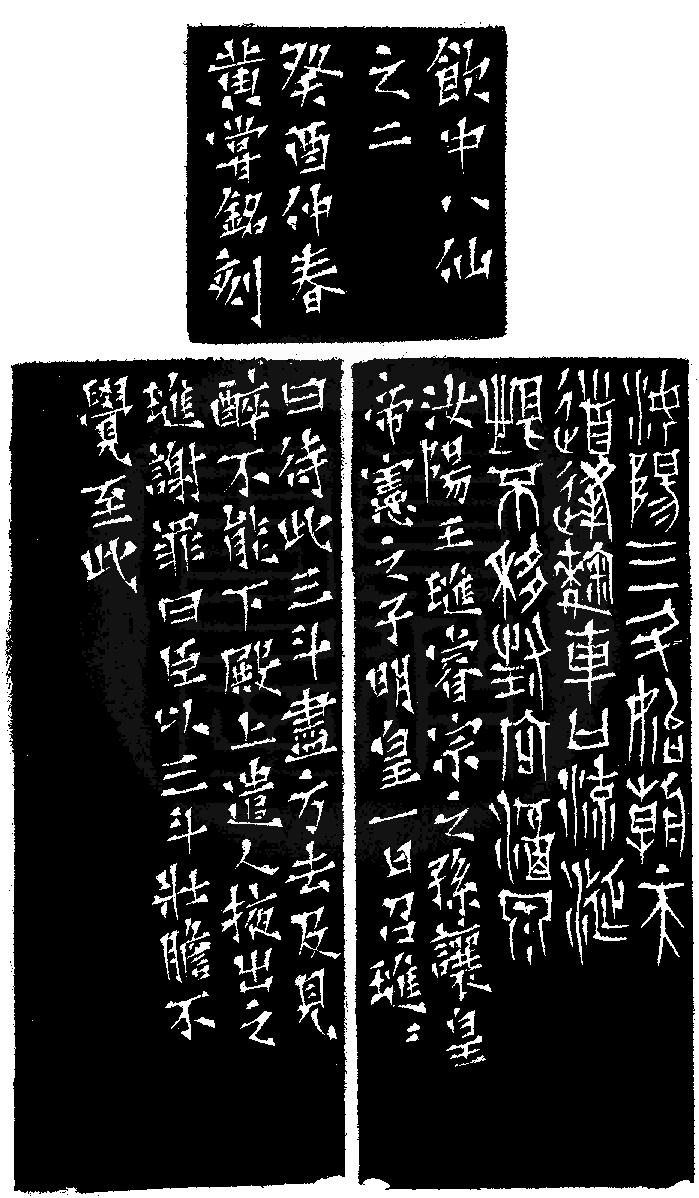 飲中八仙
之二
癸酉仲春
黃嘗銘刻
汝陽三斗始朝天
道逢麴車口流涎
恨不移封向酒泉
汝陽王璡睿宗之孫讓皇
帝憲之子明皇一日召璡〻
曰待此三斗盡方去及見
醉不能下殿上遣人掖出之
璡謝罪曰臣以三斗壯膽不
覺至此